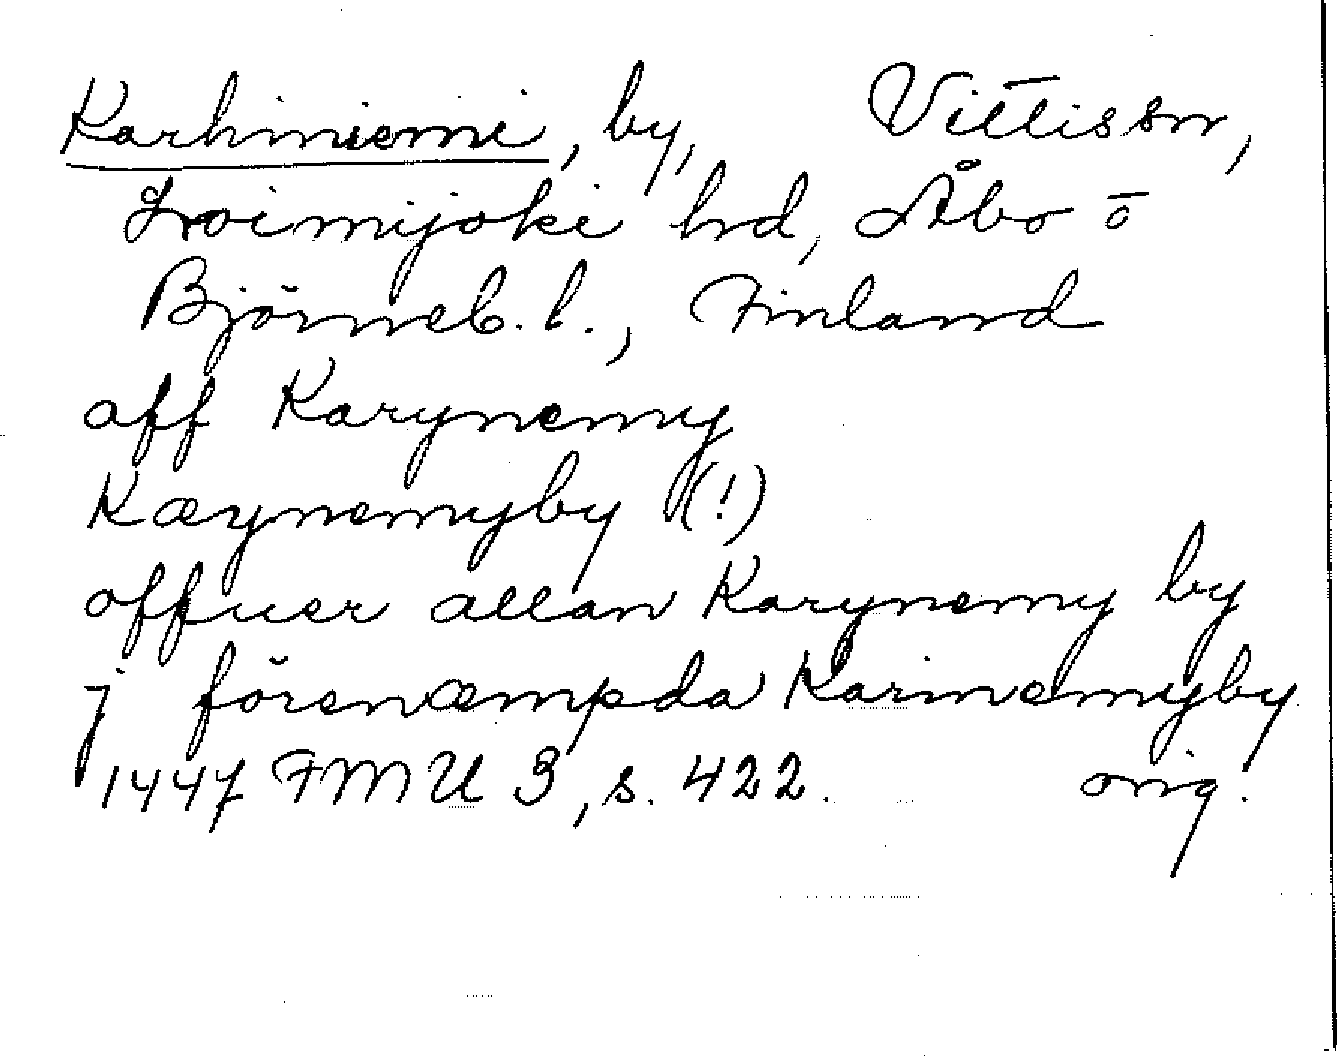 Karhiniemi, by, Vittis sn,
Loimijoki hd, Åbo o
Björneb. l., Finland
aff Karynemy
Kæynemyby (!)
offuer allan Karynemy by
j förenæmpda Karinemyby
1447 FMU 3, s. 422. orig.